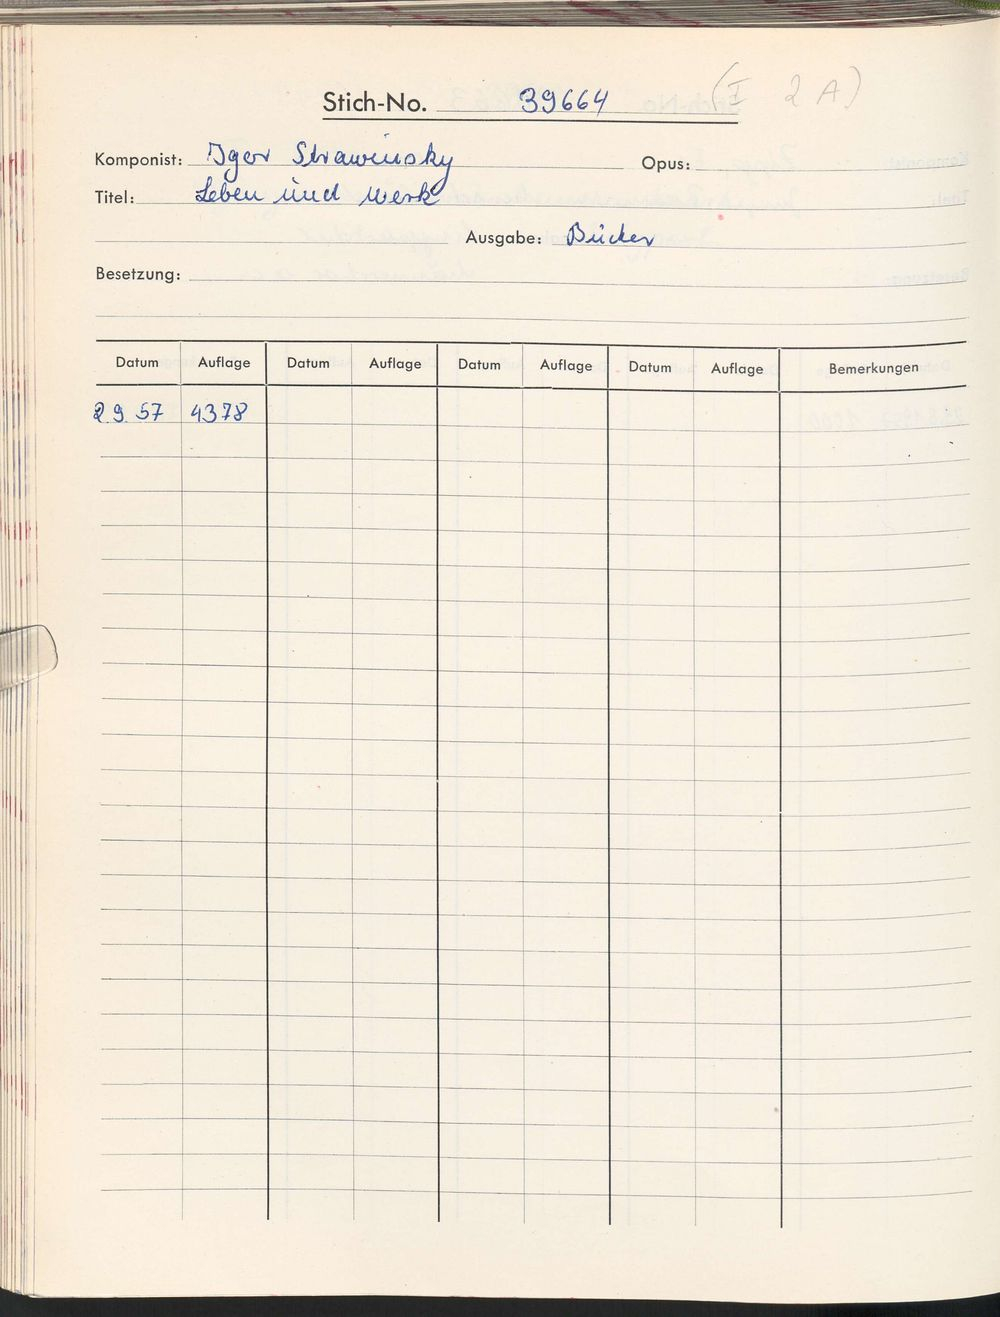 Stich-No. 39664 (I 2 A)
Komponist: Igor Strawinsky Opus:
Titel: Leben und Werk
Ausgabe: Bücher
Besetzung:
Datum Auflage Datum Auflage Datum Auflage Datum Auflage Bemerkungen
2.9.57 4378